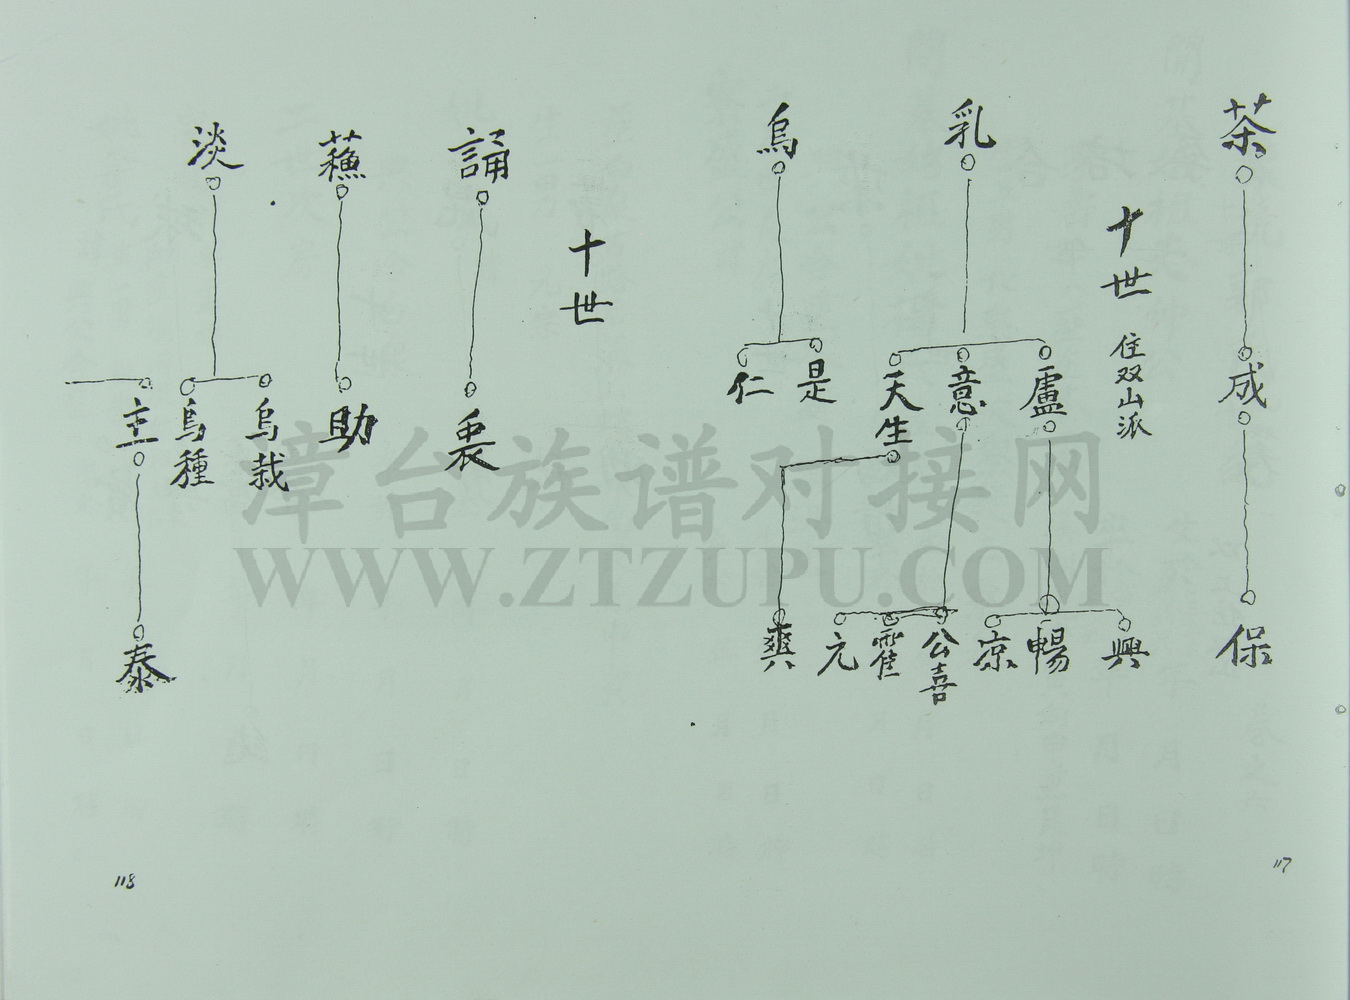 茶
成
保
十世
住双山派
乳
盧
意
天生
興
暢
凉
公喜
霍
元
爽
烏
是
仁
117
十世
誦
裏
蘓
助
淡
烏栽
烏種
主
泰
118
漳台族谱对接网
WWW.ZTZUPU.COM